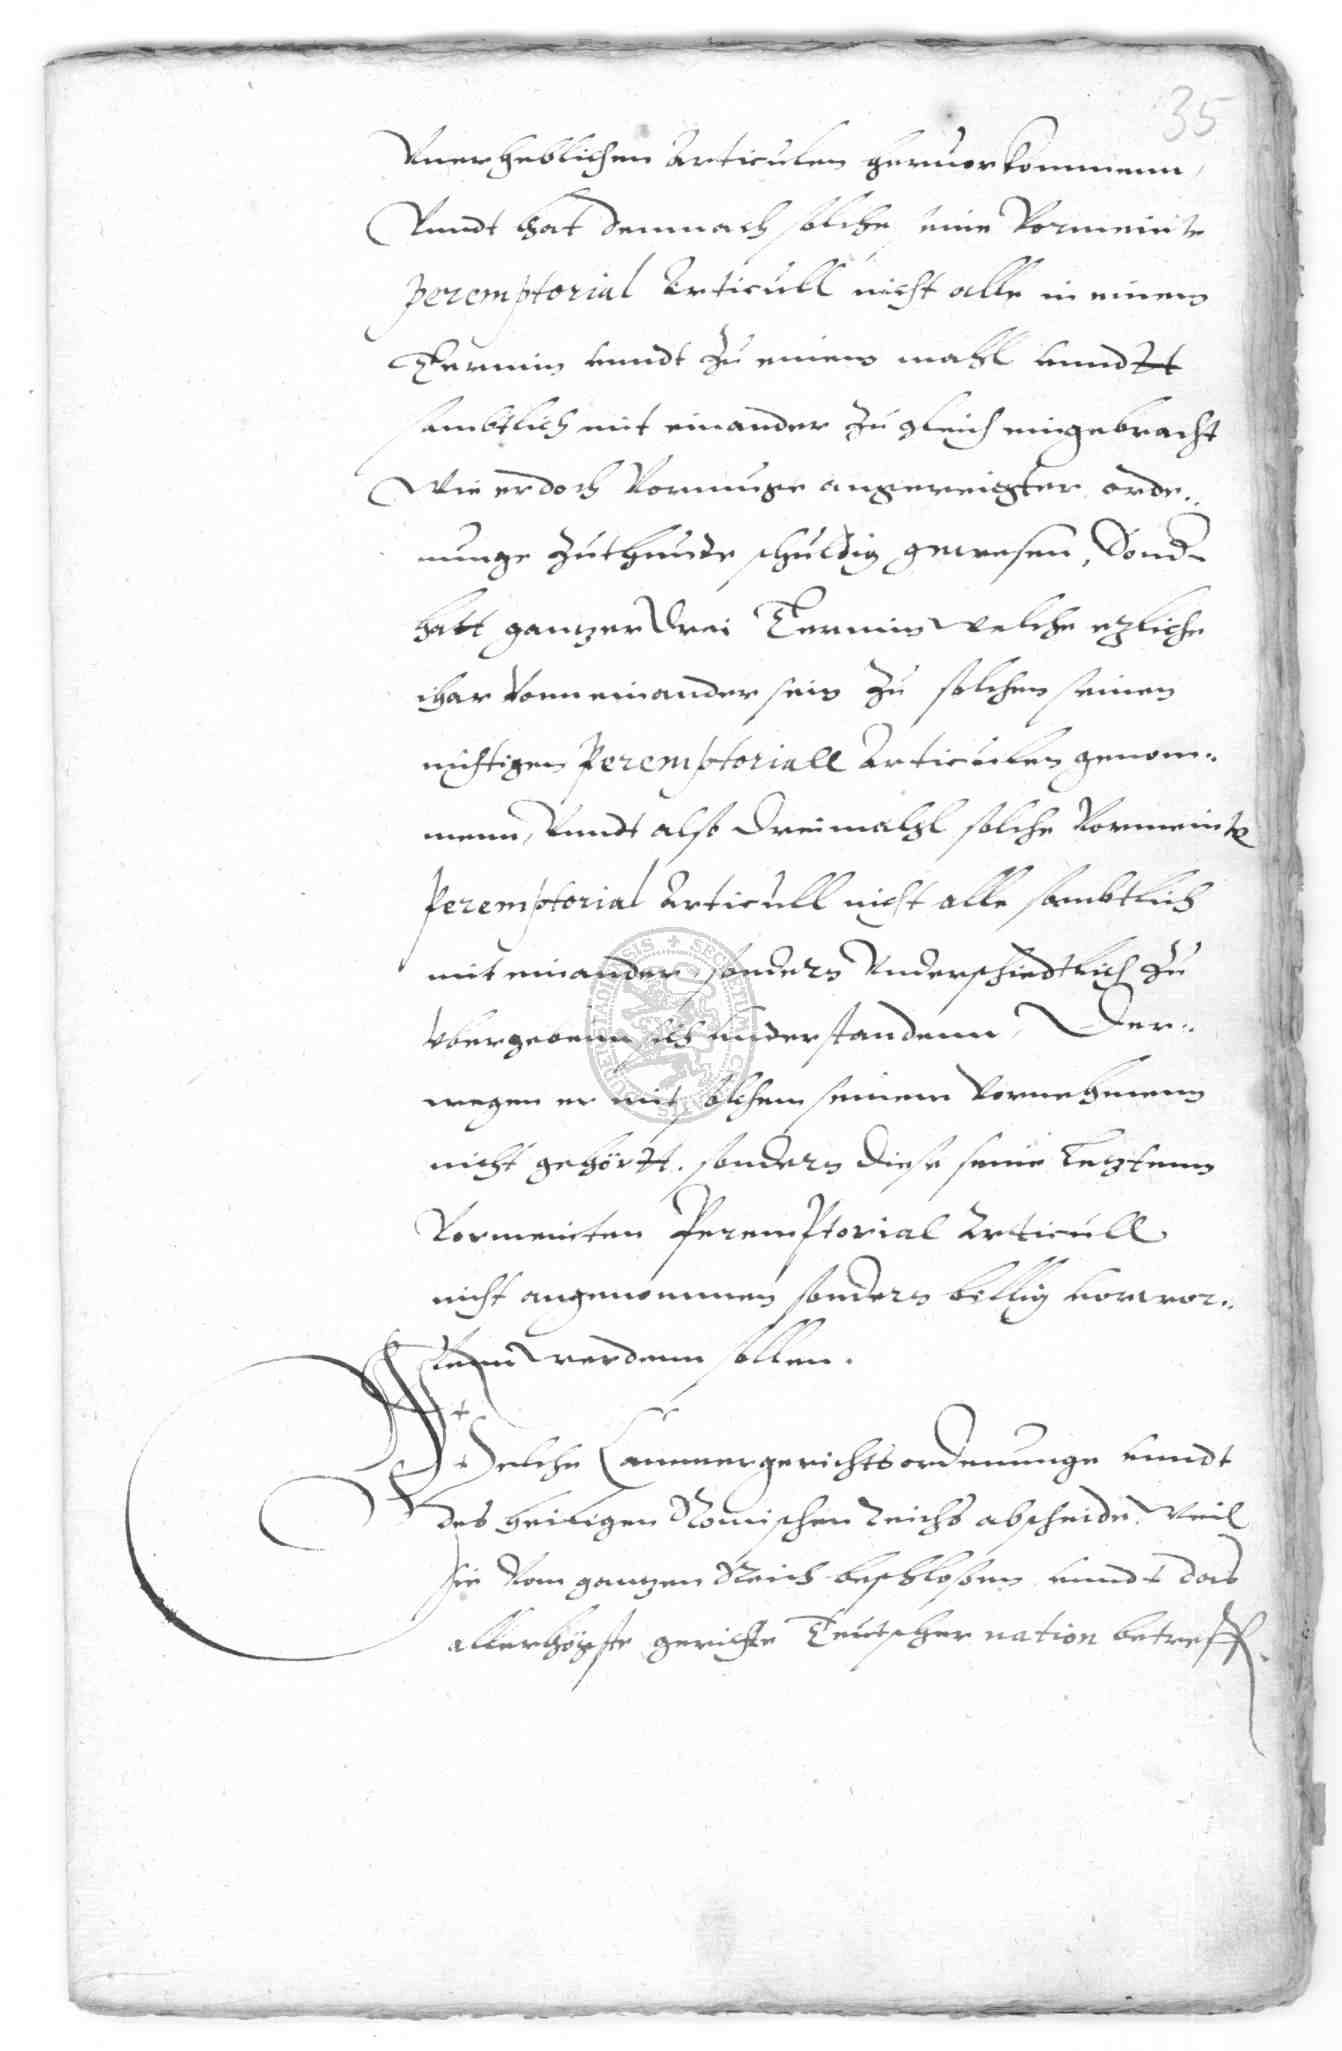 35
Vnerheblichen Articulen heruorkommenn,
Vnndt hat demnach solche seine Vormeinte
peremptorial Articull nicht alle in einem
Termin vnndt zu einem mahl vnndtt
sambtlich mit einander zu gleich eingebracht
Wie er doch Vormuge angereigter orde¬
nunge zuthunde schuldig gewesen, Sond
hatt gantzer drei Termin welche etzliche
ihar vonn einander sein zu solchen seinen
nichtigen Peremptoriall Articulen genom¬
menn, Vnndt also dreimahl solche Vormeinte
Peremptorial Articull nicht alle sambtlich
mit einander, sondern Vnderschiedtlich zu
vbergebenn sich vnderstandenn, Der¬
wegen er mit solchem seinem Vornehmenn
nicht gehörtt. sondern diese seine letztenn
Vormeinten Peremptorial Articull
nicht angenommen sondern billig vorwor¬
fenn werdenn sollen.
Welche Cammergerichtsordenunge vnndt
des heiligen Römischen Reichs abscheide, Weil
sie Vom gantzen Reich beschlossen vnndt das
allerhögste gerichte Teutscher nation betreff
SECRETUM